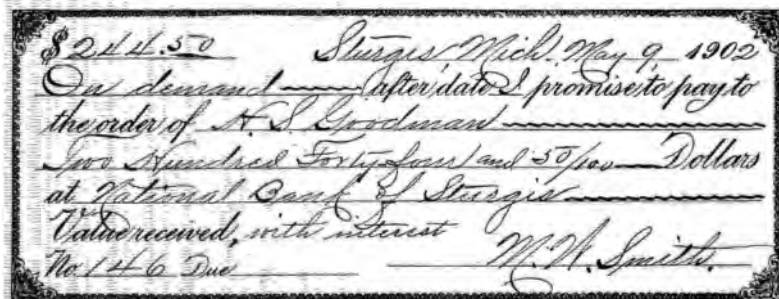 $244.50 Sturgis Mich. May 9, 1902
On demand after date I promise to pay to
the order of H. S. Goodman
Two Hundred Forty four and 50/100 Dollars
at National Bank of Sturgis
Value received, with interest
No. 146 Due M. W. Smith.